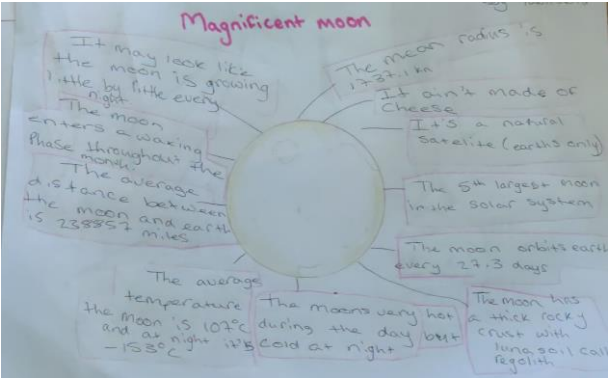 Magnificent moon
It may look like
the moon is growing
little by little every
night
The moon
enters a waxing
Phase throughout the
month.
The average
distance between
the moon and earth
is 238857 miles
The average
temperature
the moon is 107°c
and at night it's
-153°c
The moons very hot
during the day but
cold at night
The mean radius is
1737.1 km
It ain't made of
cheese
It's a natural
satelite (earths only)
The 5th largest moon
in the solar system
The moon orbits earth
every 27.3 days
The moon has
a thick rocky
crust with
lunar soil call
regolith